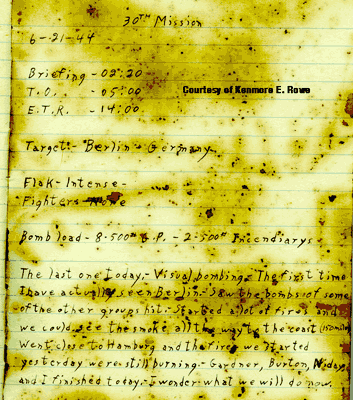 30TH Mission
6-21-44
Briefing - 02:20
T.O. - 05:00
Courtesy of Kenmore E. Rowe
E.T.R. - 14:00
Target - Berlin - Germany
Flak - Intense -
Fighters None
Bomb load - 8-500# G.P. - 2-500# Incendiarys
The last one today. - Visual bombing. The first time
I have actually seen Berlin. Saw the bombs of some
of the other groups hit. Started a lot of fires and
we could see the smoke all the way to the coast
Went close to Hamburg and the fires we started
yesterday were still burning - Gardner, Burton, Niday
and I finished today. I wonder what we will do now.